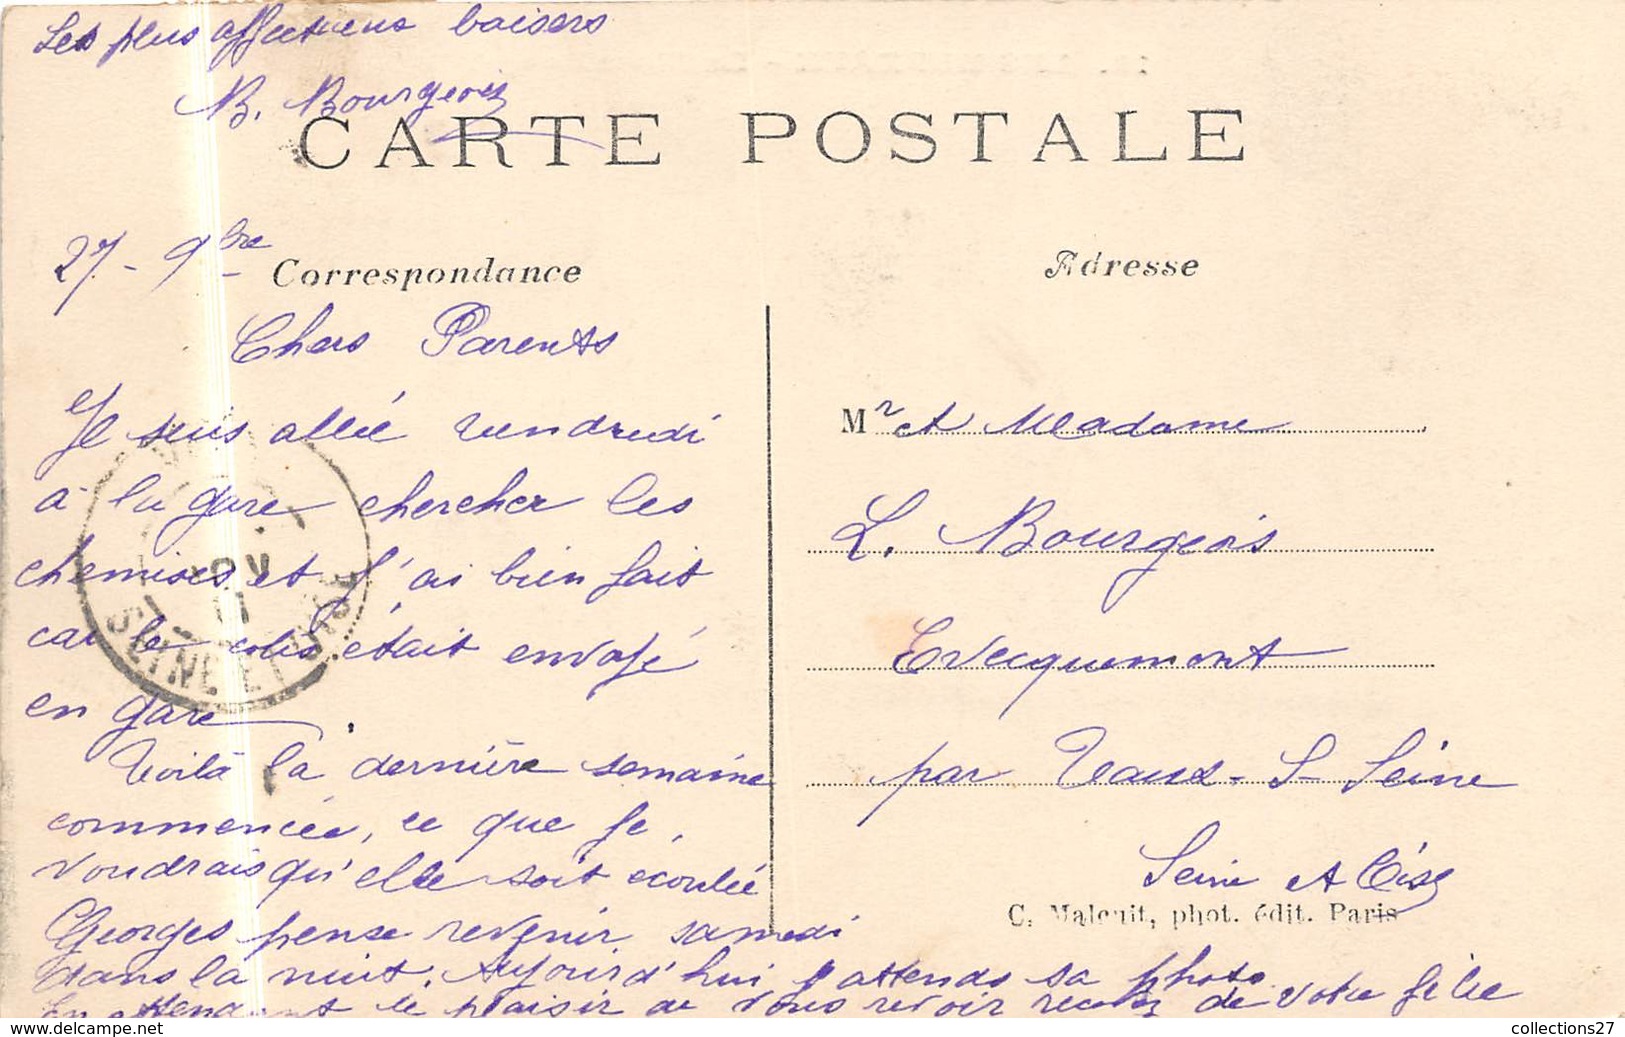 Les plus affectueux baisers
B. Bourgeois
CARTE POSTALE
27 - 9bre
Correspondance
Adresse
Chers Parents
Je suis allée vendredi
à la gare chercher les
chemises et j'ai bien fait
car le colis était envoyé
en gare.
Voilà la dernière semaine
commencée, ce que je
voudrais qu'elle soit écoulée
Georges pense revenir samedi
dans la nuit. Aujourd'hui j'attends sa photo.
En attendant le plaisir de vous revoir recevez de votre fille
Mr et Madame
L. Bourgeois
Evecquemont
par Vaux-S-Seine
Seine et Oise
C. Malcuit, phot. édit. Paris
NOV
11
SEINE ET OISE
collections27